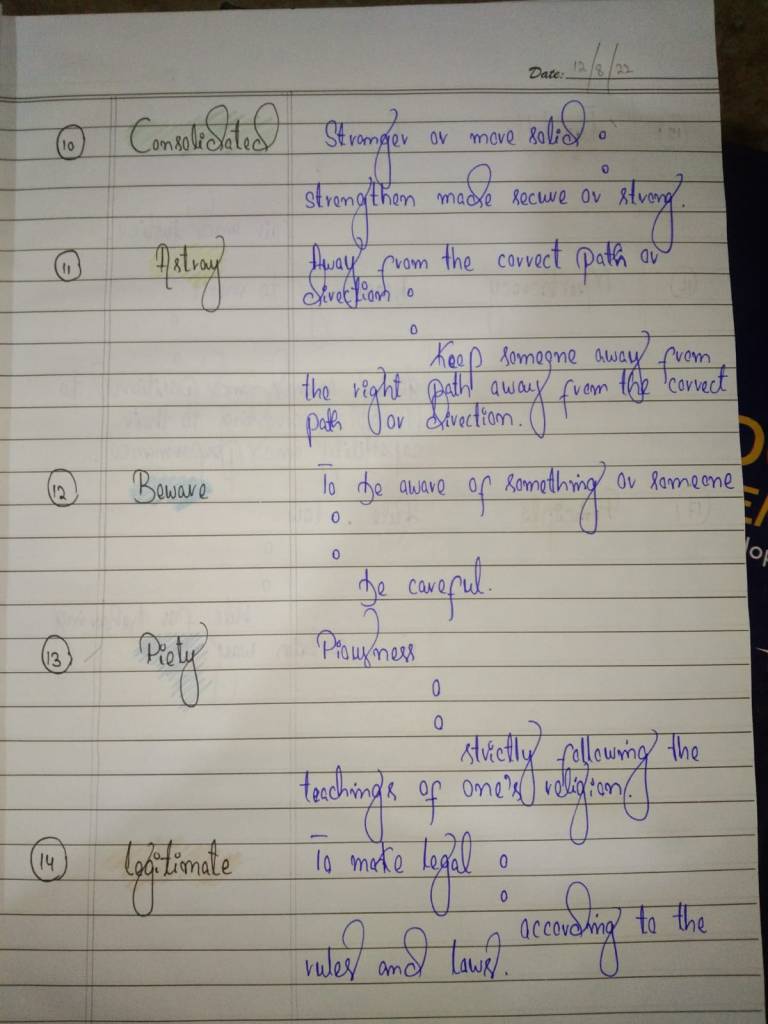 Date: 12/8/22
10 Consolidated Stronger or more solid :
strengthen made secure or strong.
11 Astray Away from the correct path or
direction :
Keep someone away from
the right path away from the correct
path or direction.
12 Beware To be aware of something or someone
:
be careful.
13 Piety Piousness
:
strictly following the
teachings of one's religion.
14 Legitimate To make legal :
according to the
rules and laws.